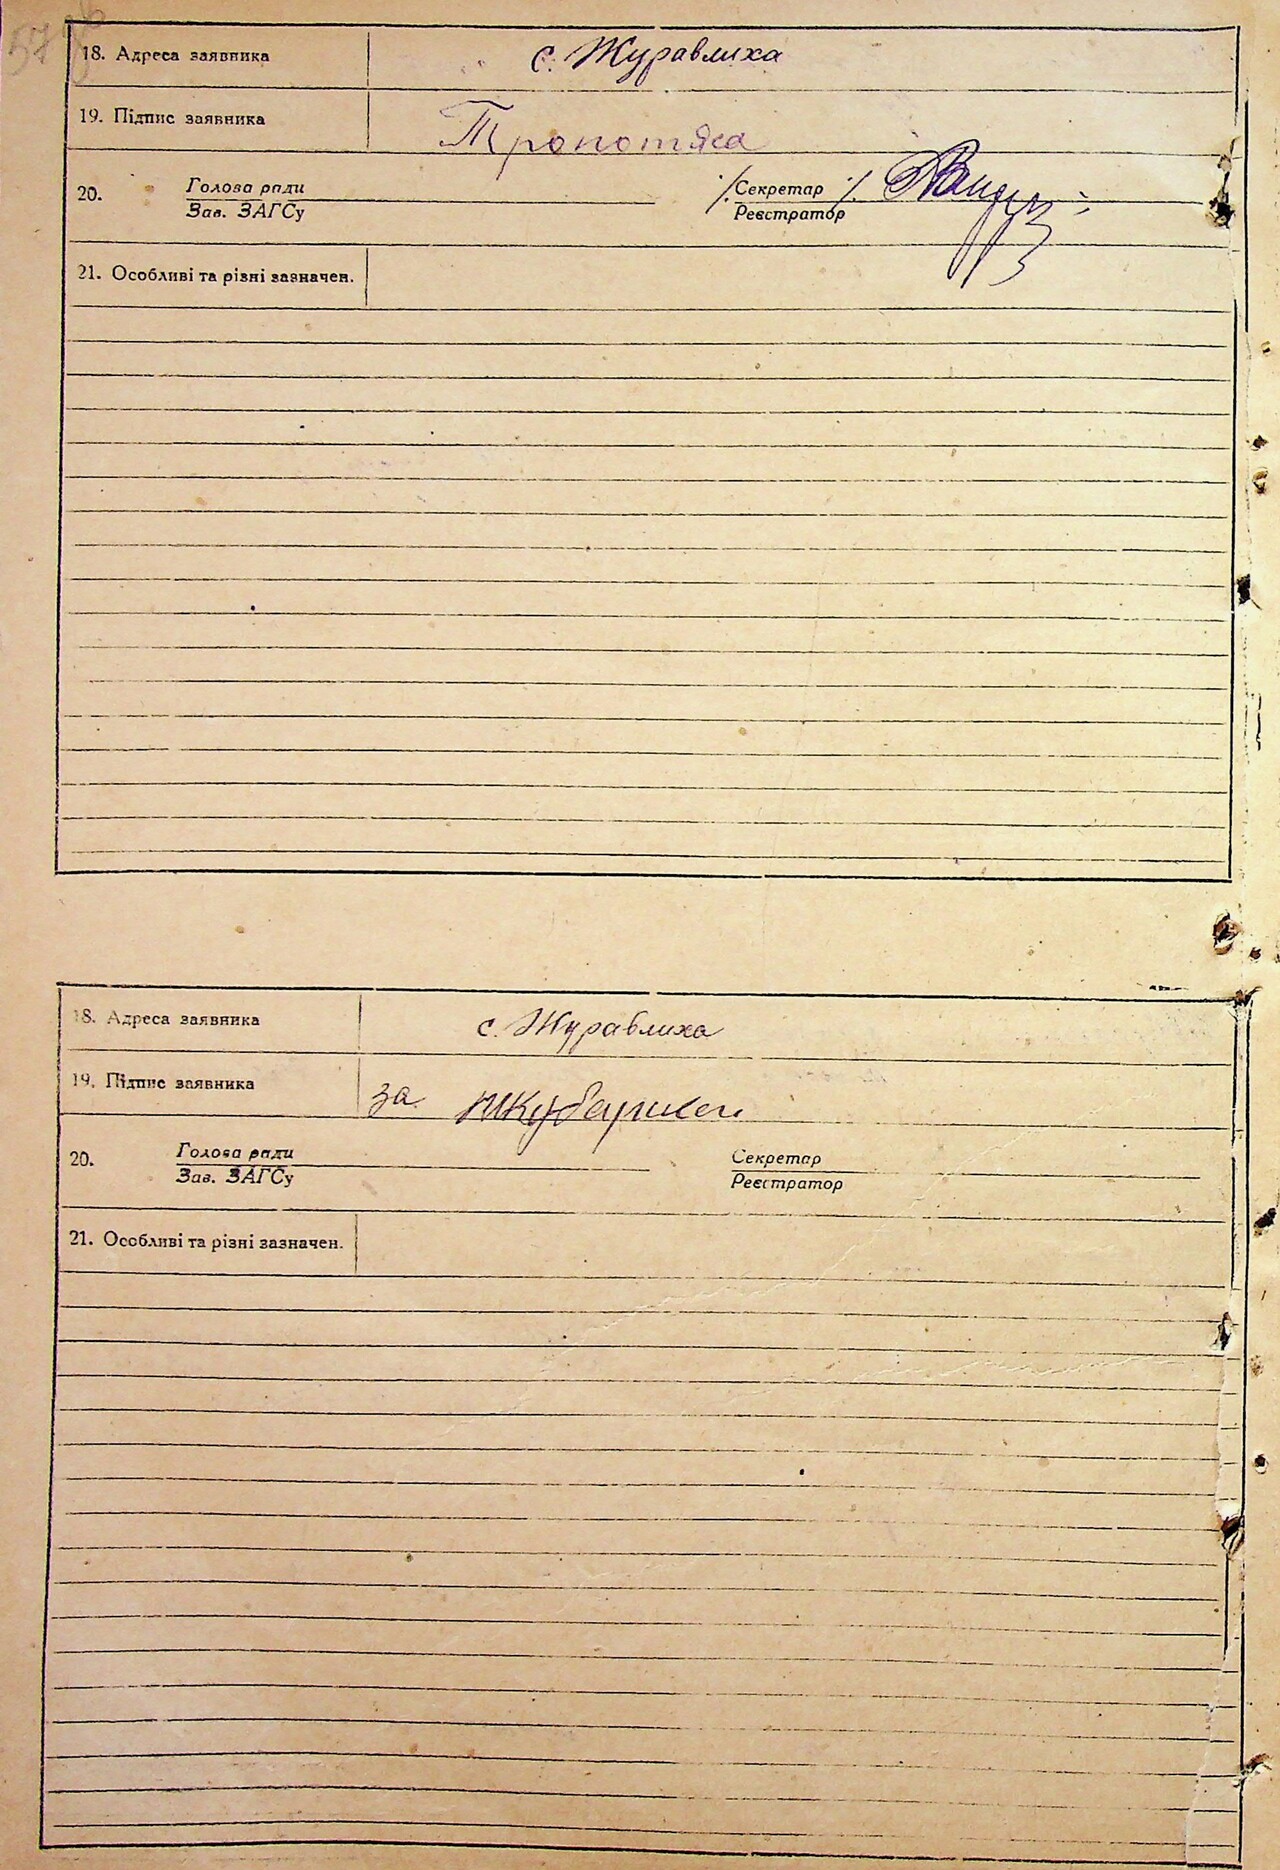 18. Адреса заявника с. Журавлиха
19. Підпис заявника
20. Голова ради Секретар
Зав. ЗАГСу Реєстратор
21. Особливі та різні зазначен.
18. Адреса заявника с. Журавлиха
19. Підпис заявника за
20. Голова ради Секретар
Зав. ЗАГСу Реєстратор
21. Особливі та різні зазначен.